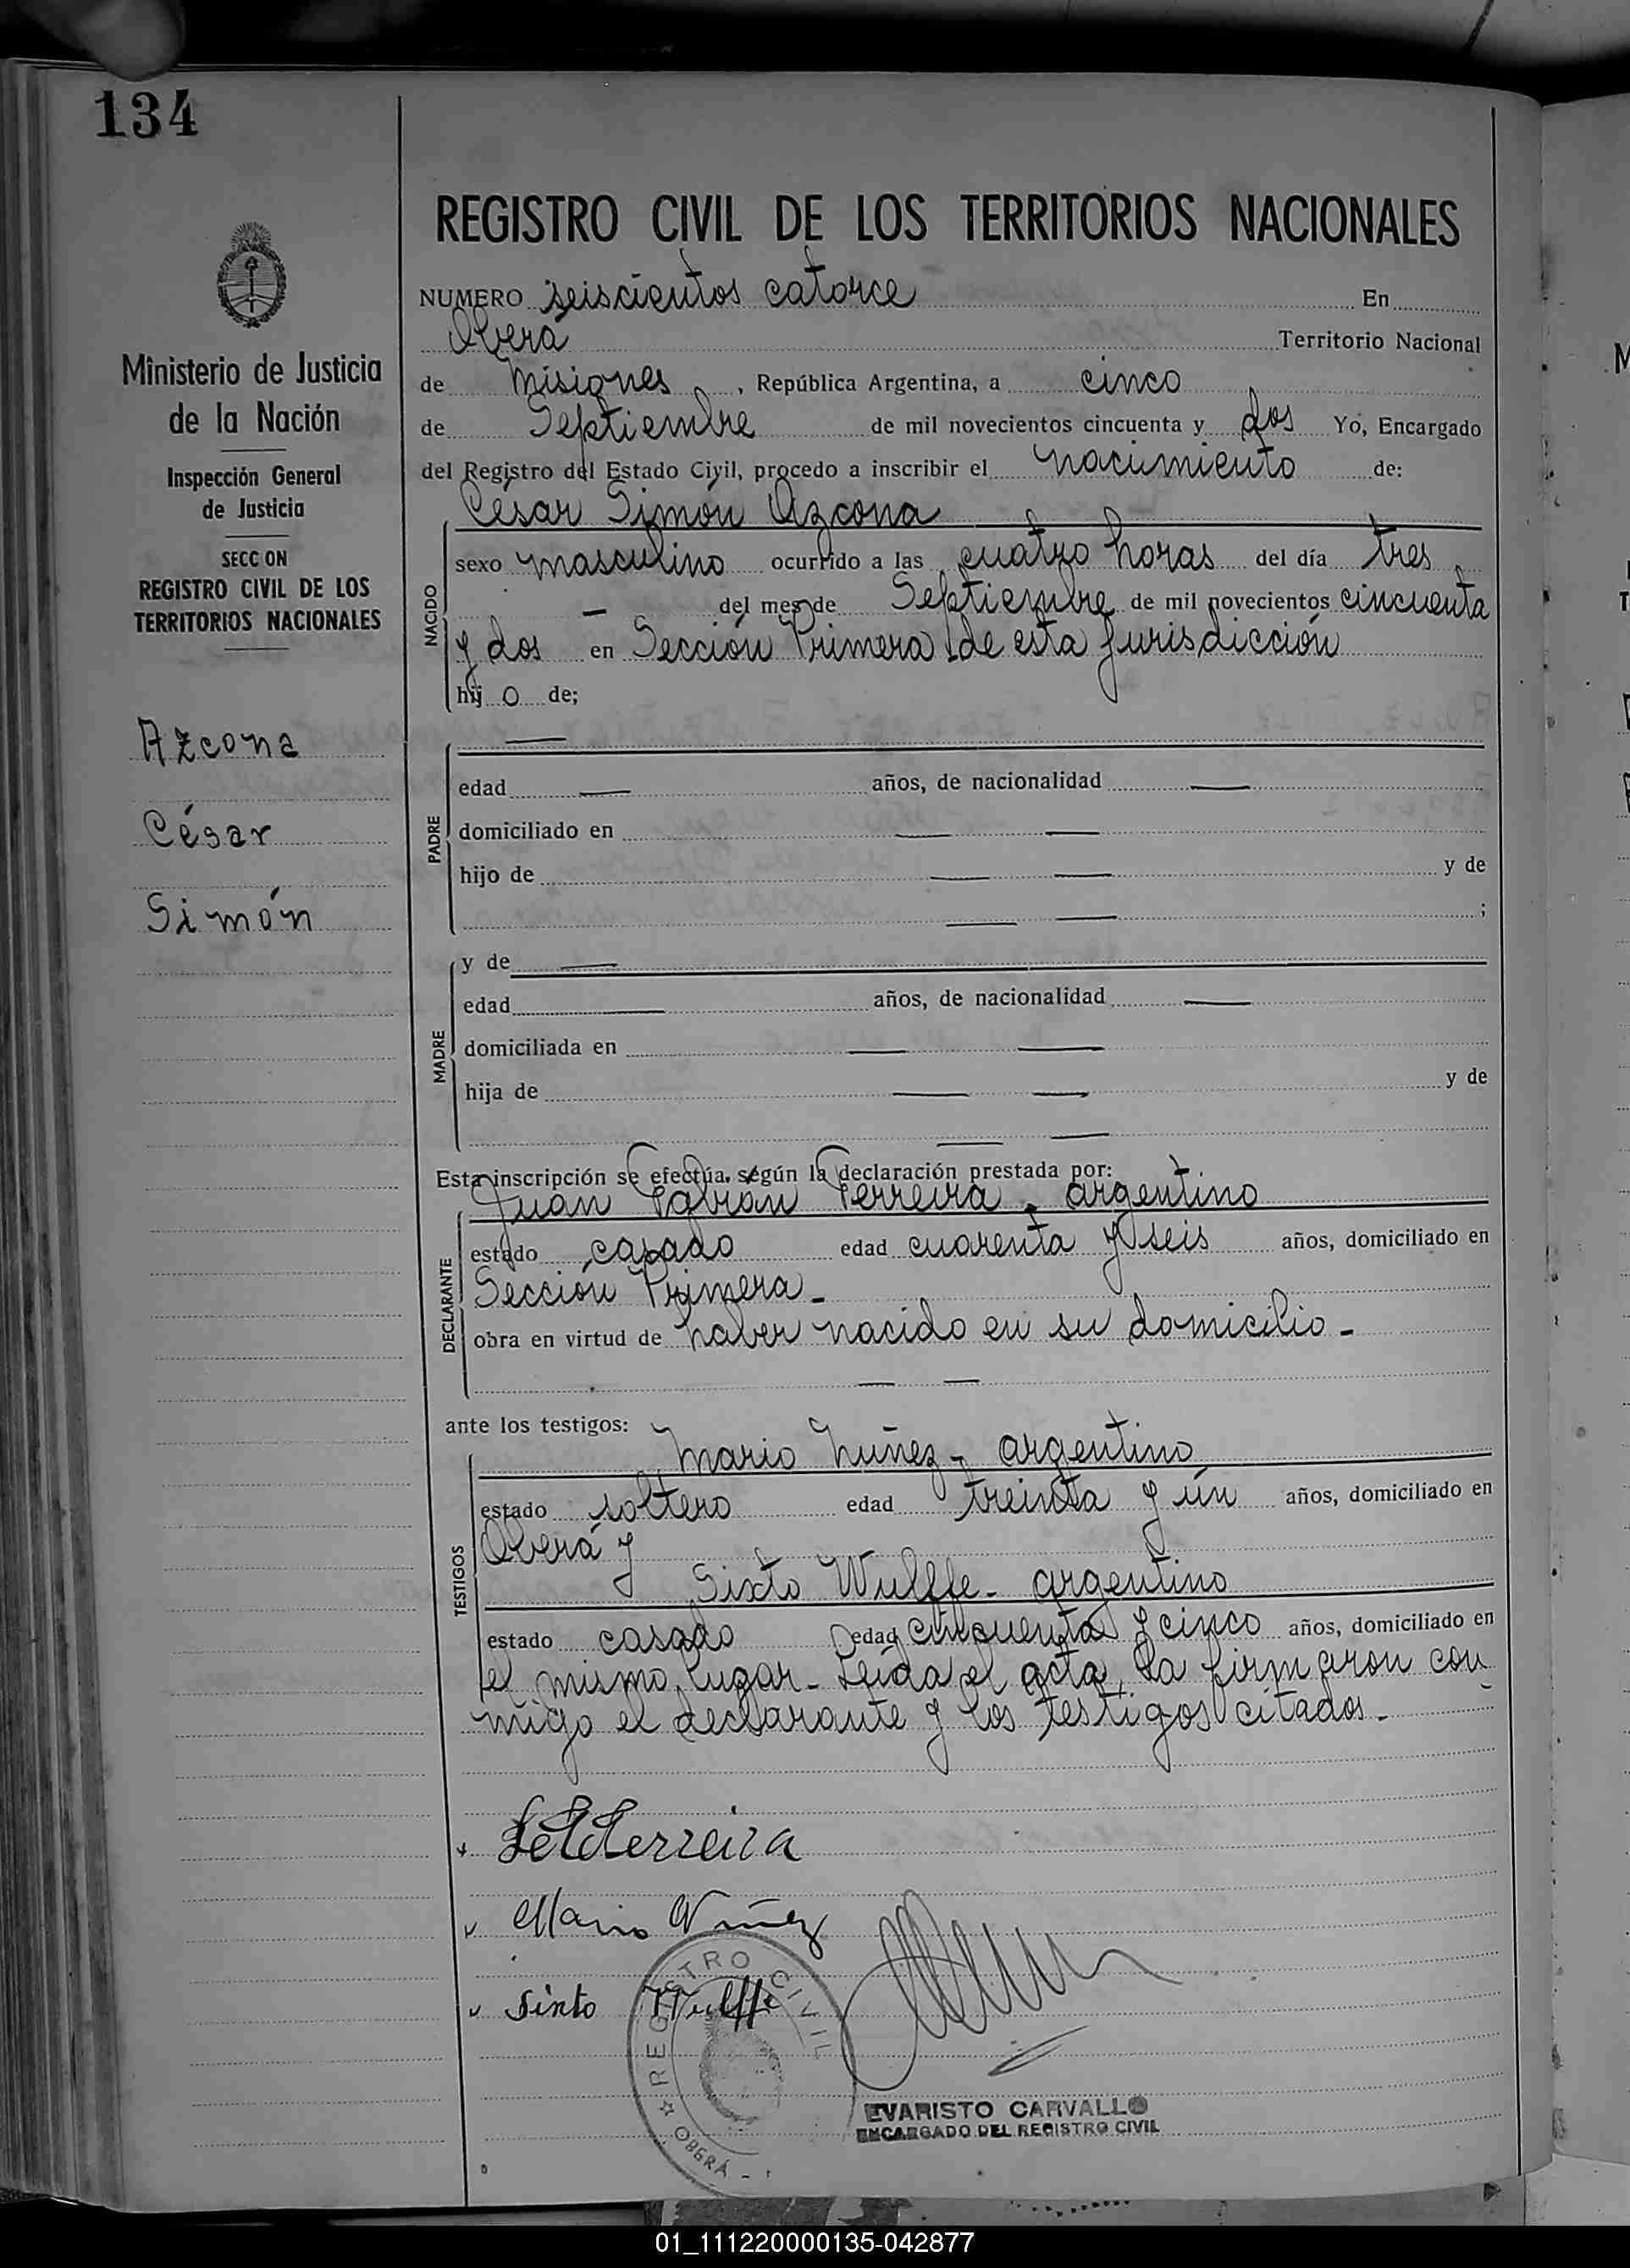 134
REGISTRO CIVIL DE LOS TERRITORIOS NACIONALES
NUMERO seiscientos catorce En
Oberá Territorio Nacional
de Misiones, República Argentina, a cinco
de Septiembre de mil novecientos cincuenta y dos Yo, Encargado
del Registro del Estado Civil, procedo a inscribir el nacimiento de:
César Simón Azcona
NACIDO
sexo masculino ocurrido a las cuatro horas del día tres
— del mes de Septiembre de mil novecientos cincuenta
y dos en Sección Primera de esta jurisdicción
hijo de;
—
PADRE
edad — años, de nacionalidad —
domiciliado en — —
hijo de — — y de
— — ;
MADRE
y de —
edad — años, de nacionalidad —
domiciliada en — —
hija de — — y de
— —
Esta inscripción se efectúa según la declaración prestada por:
Juan Fabián Ferreira, argentino
DECLARANTE
estado casado edad cuarenta y seis años, domiciliado en
Sección Primera -
obra en virtud de haber nacido en su domicilio -
— —
ante los testigos:
Mario Núñez - argentino
TESTIGOS
estado soltero edad treinta y ún años, domiciliado en
Oberá y
Sixto Wulffe - argentino
estado casado edad cincuenta y cinco años, domiciliado en
el mismo lugar - Leída el acta, la firmaron con
migo el declarante y los testigos citados -
Mario Núñez
Sixto Wulffe
REGISTRO CIVIL
OBERÁ -
EVARISTO CARVALLO
ENCARGADO DEL REGISTRO CIVIL
Ministerio de Justicia
de la Nación
Inspección General
de Justicia
SECCION
REGISTRO CIVIL DE LOS
TERRITORIOS NACIONALES
Azcona
César
Simón
01_111220000135-042877